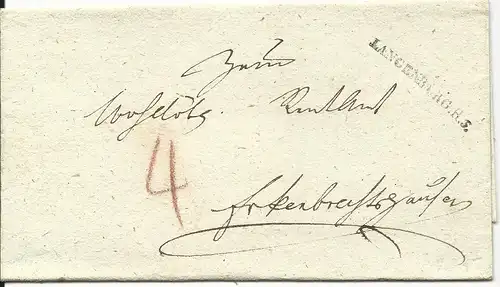 LANGENBURG.R.3.
Zum
Wohllöbl. Rentamt
4
Erkenbrechtshausen